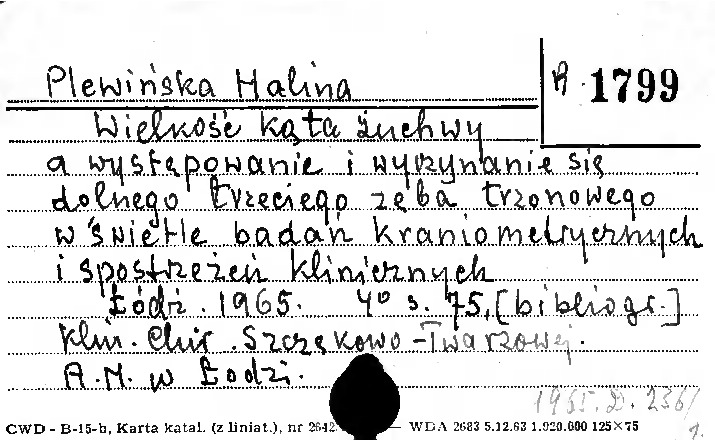 R 1799
Plewińska Halina
Wielkość kąta żuchwy
a występowanie i wyrzynanie się
dolnego trzeciego zęba trzonowego
w świetle badań kraniometrycznych
i spostrzeżeń klinicznych
Łódź. 1965. 4° s. 75, [bibliogr.]
Klin. Chir. Szczękowo-Twarzowej.
A.M. w Łodzi.
1965. D. 236/
CWD - B-15-b, Karta katal. (z liniat.), nr 2642 — WDA 2683 5.12.63 1.920.000 125×75